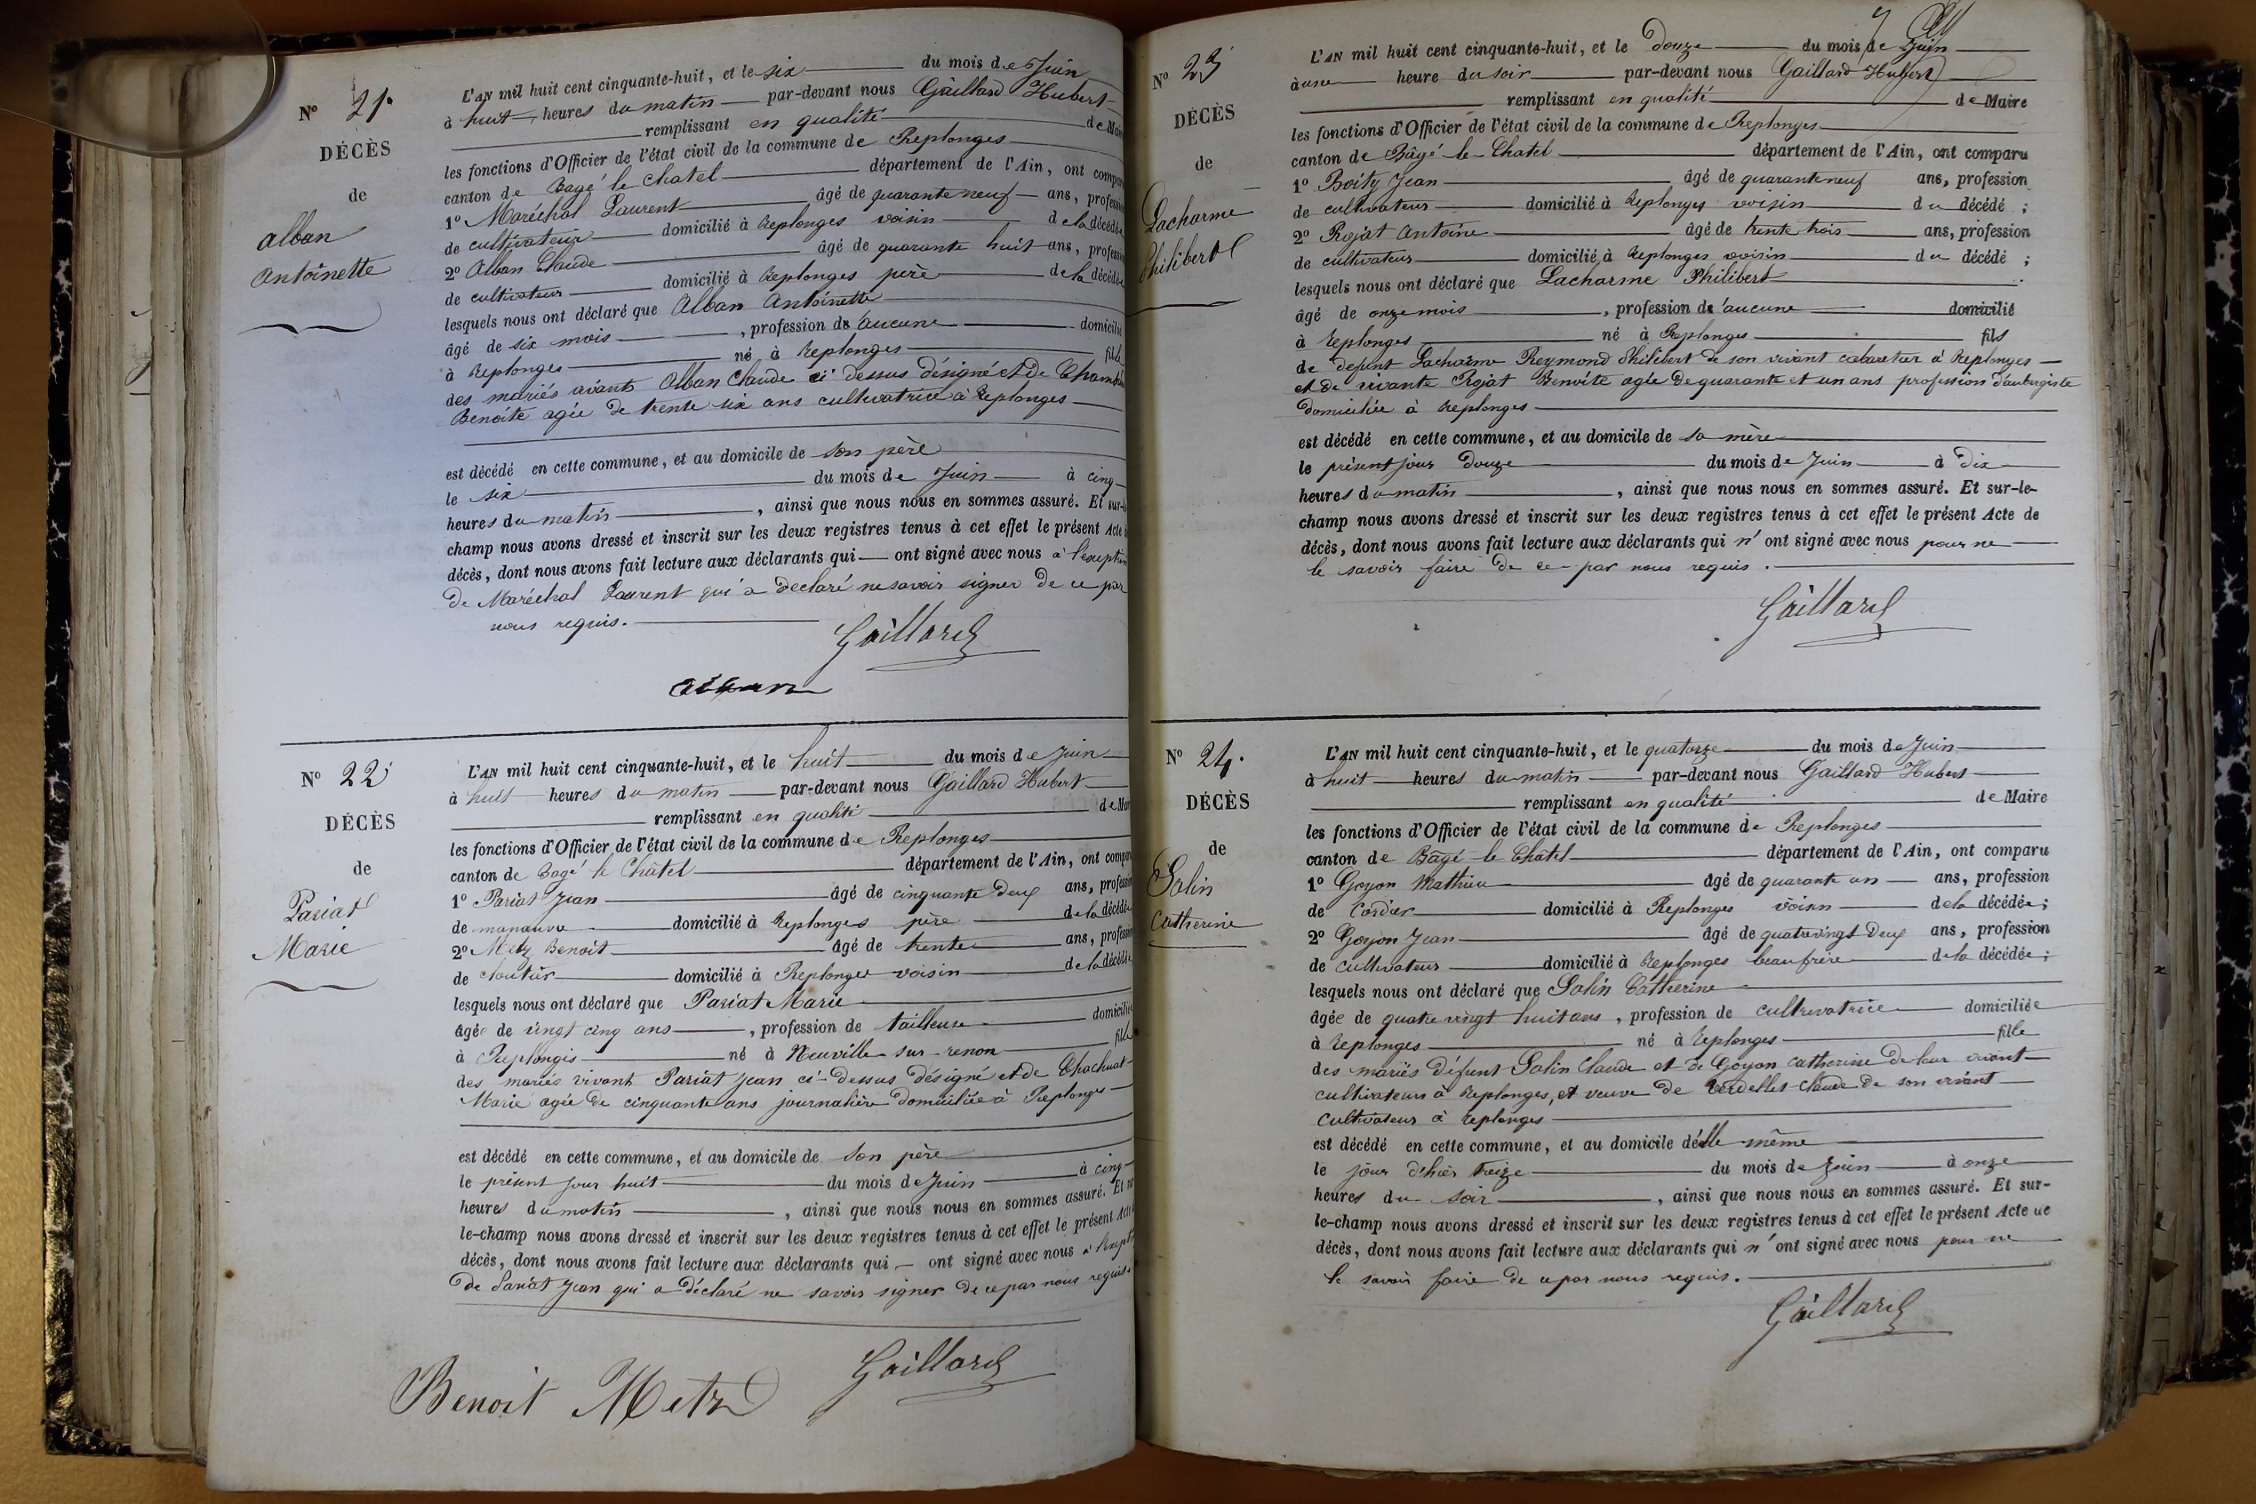 Nº 21.
DÉCÈS
de
Alban
Antoinette
L'AN mil huit cent cinquante-huit, et le six du mois de Juin
à huit heures du matin par-devant nous Gaillard Hubert
remplissant en qualité de Maire
les fonctions d'Officier de l'état civil de la commune de Replonges
canton de Bagé le Chatel département de l'Ain, ont comparu
1º Maréchal Laurent âgé de quarante neuf ans, profession
de cultivateur domicilié à Replonges voisin de la décédée
2º Alban Claude âgé de quarante huit ans, profession
de cultivateur domicilié à Replonges père de la décédée
lesquels nous ont déclaré que Alban Antoinette
âgé de six mois, profession de aucune domicilié
à Replonges né à Replonges fille
des mariés vivants Alban Claude ci dessus désigné et de
Benoite agée de trente six ans cultivatrice à Replonges
est décédé en cette commune, et au domicile de son père
le six du mois de Juin à cinq
heures du matin, ainsi que nous nous en sommes assuré. Et sur-le-
champ nous avons dressé et inscrit sur les deux registres tenus à cet effet le présent Acte de
décès, dont nous avons fait lecture aux déclarants qui ont signé avec nous à l'exception
de Maréchal Laurent qui a déclaré ne savoir signer de ce par
nous requis.
Gaillard
Alban
Nº 22
DÉCÈS
de
Pariat
Marie
L'AN mil huit cent cinquante-huit, et le huit du mois de Juin
à huit heures du matin par-devant nous Gaillard Hubert
remplissant en qualité de Maire
les fonctions d'Officier de l'état civil de la commune de Replonges
canton de Bagé le Châtel département de l'Ain, ont comparu
1º Pariat Jean âgé de cinquante deux ans, profession
de manœuvre domicilié à Replonges père de la décédée
2º Metz Benoit âgé de trente ans, profession
de cloutier domicilié à Replonges voisin de la décédée
lesquels nous ont déclaré que Pariat Marie
âgée de vingt cinq ans, profession de tailleuse domiciliée
à Replonges né à Neuville sur renon fille
des mariés vivant Pariat Jean ci-dessus désigné et de Chachuat
Marie agée de cinquante ans journalière domiciliée à Replonges
est décédé en cette commune, et au domicile de son père
le présent jour huit du mois de Juin à cinq
heures du matin, ainsi que nous nous en sommes assuré. Et sur-
le-champ nous avons dressé et inscrit sur les deux registres tenus à cet effet le présent Acte de
décès, dont nous avons fait lecture aux déclarants qui ont signé avec nous à l'exception
de Pariat Jean qui a déclaré ne savoir signer de ce par nous requis.
Gaillard
Benoit Metz
Nº 23
DÉCÈS
de
Lacharme
Philibert
L'AN mil huit cent cinquante-huit, et le Douze du mois de Juin
à une heure du soir par-devant nous Gaillard Hubert
remplissant en qualité de Maire
les fonctions d'Officier de l'état civil de la commune de Replonges
canton de Bâgé-le-Chatel département de l'Ain, ont comparu
1º Boity Jean âgé de quarante neuf ans, profession
de cultivateur domicilié à Replonges voisin du décédé ;
2º Rojat Antoine âgé de trente trois ans, profession
de cultivateur domicilié à Replonges voisin du décédé ;
lesquels nous ont déclaré que Lacharme Philibert
âgé de onze mois, profession de aucune domicilié
à Replonges né à Replonges fils
de defunt Lacharme Reymond Philibert de son vivant cabaretier à Replonges
et de vivante Rojat Benoite agée de quarante et un ans profession d'aubergiste
domiciliée à Replonges
est décédé en cette commune, et au domicile de sa mère
le présent jour douze du mois de Juin à dix
heures du matin, ainsi que nous nous en sommes assuré. Et sur-le-
champ nous avons dressé et inscrit sur les deux registres tenus à cet effet le présent Acte de
décès, dont nous avons fait lecture aux déclarants qui n'ont signé avec nous pour ne
le savoir faire de ce par nous requis.
Gaillard
Nº 24.
DÉCÈS
de
Salin
Catherine
L'AN mil huit cent cinquante-huit, et le quatorze du mois de Juin
à huit heures du matin par-devant nous Gaillard Hubert
remplissant en qualité de Maire
les fonctions d'Officier de l'état civil de la commune de Replonges
canton de Bagé-le Châtel département de l'Ain, ont comparu
1º Goyon Mathieu âgé de quarante un ans, profession
de Cordier domicilié à Replonges voisin de la décédée ;
2º Goyon Jean âgé de quatrevingt deux ans, profession
de cultivateur domicilié à Replonges beau frère de la décédée ;
lesquels nous ont déclaré que Salin Catherine
âgée de quatre vingt huit ans, profession de cultivatrice domiciliée
à Replonges né à Replonges fille
des mariés défunt Salin Claude et de Goyon Catherine de leur vivant
cultivateurs à Replonges, et veuve de Verdellet Claude de son vivant
cultivateur à Replonges
est décédé en cette commune, et au domicile d'elle même
le jour d'hier treize du mois de Juin à onze
heures du soir, ainsi que nous nous en sommes assuré. Et sur-
le-champ nous avons dressé et inscrit sur les deux registres tenus à cet effet le présent Acte de
décès, dont nous avons fait lecture aux déclarants qui n'ont signé avec nous pour ne
le savoir faire de ce par nous requis.
Gaillard